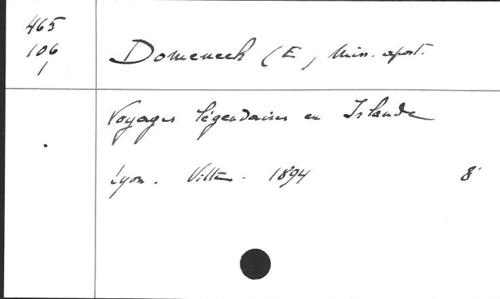 465
106
1
Domenech (E, Miss. apost.
Voyages légendaires en Islande
Lyon. Vitte. 1894 8°